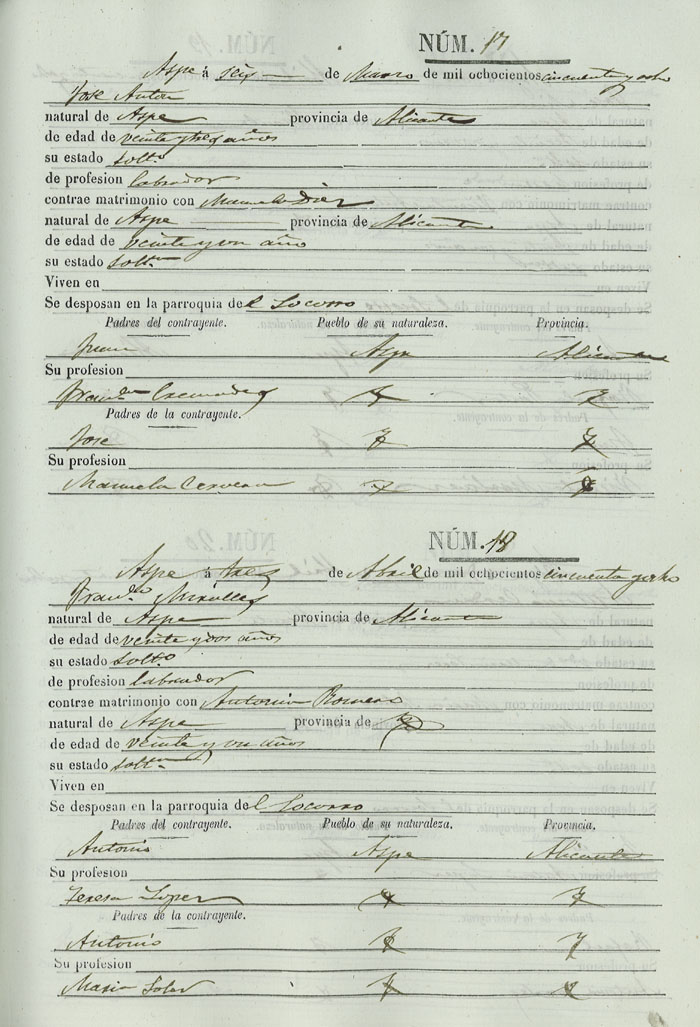 NÚM. 17
Aspe á seis de Marzo de mil ochocientos cincuenta y ocho
Jose Anton
natural de Aspe provincia de Alicante
de edad de veinte y tres años
su estado Solt.º
de profesion labrador
contrae matrimonio con Manuela Diez
natural de Aspe provincia de Alicante
de edad de veinte y un año
su estado Solt.ª
Viven en
Se desposan en la parroquia del Socorro
Padres del contrayente. Pueblo de su naturaleza. Provincia.
Juan Aspe Alicante
Su profesion
Fran.ca Cremades
Padres de la contrayente.
Jose
Su profesion
Manuela Cervera
NÚM. 18
Aspe á tres de Abril de mil ochocientos cincuenta y ocho
Fran.co Miralles
natural de Aspe provincia de Alicante
de edad de veinte y dos años
su estado Solt.º
de profesion labrador
contrae matrimonio con Antonia Romero
natural de Aspe provincia de
de edad de veinte y un años
su estado Solt.ª
Viven en
Se desposan en la parroquia del Socorro
Padres del contrayente. Pueblo de su naturaleza. Provincia.
Antonio Aspe Alicante
Su profesion
Teresa Lopez
Padres de la contrayente.
Antonio
Su profesion
Maria Soler